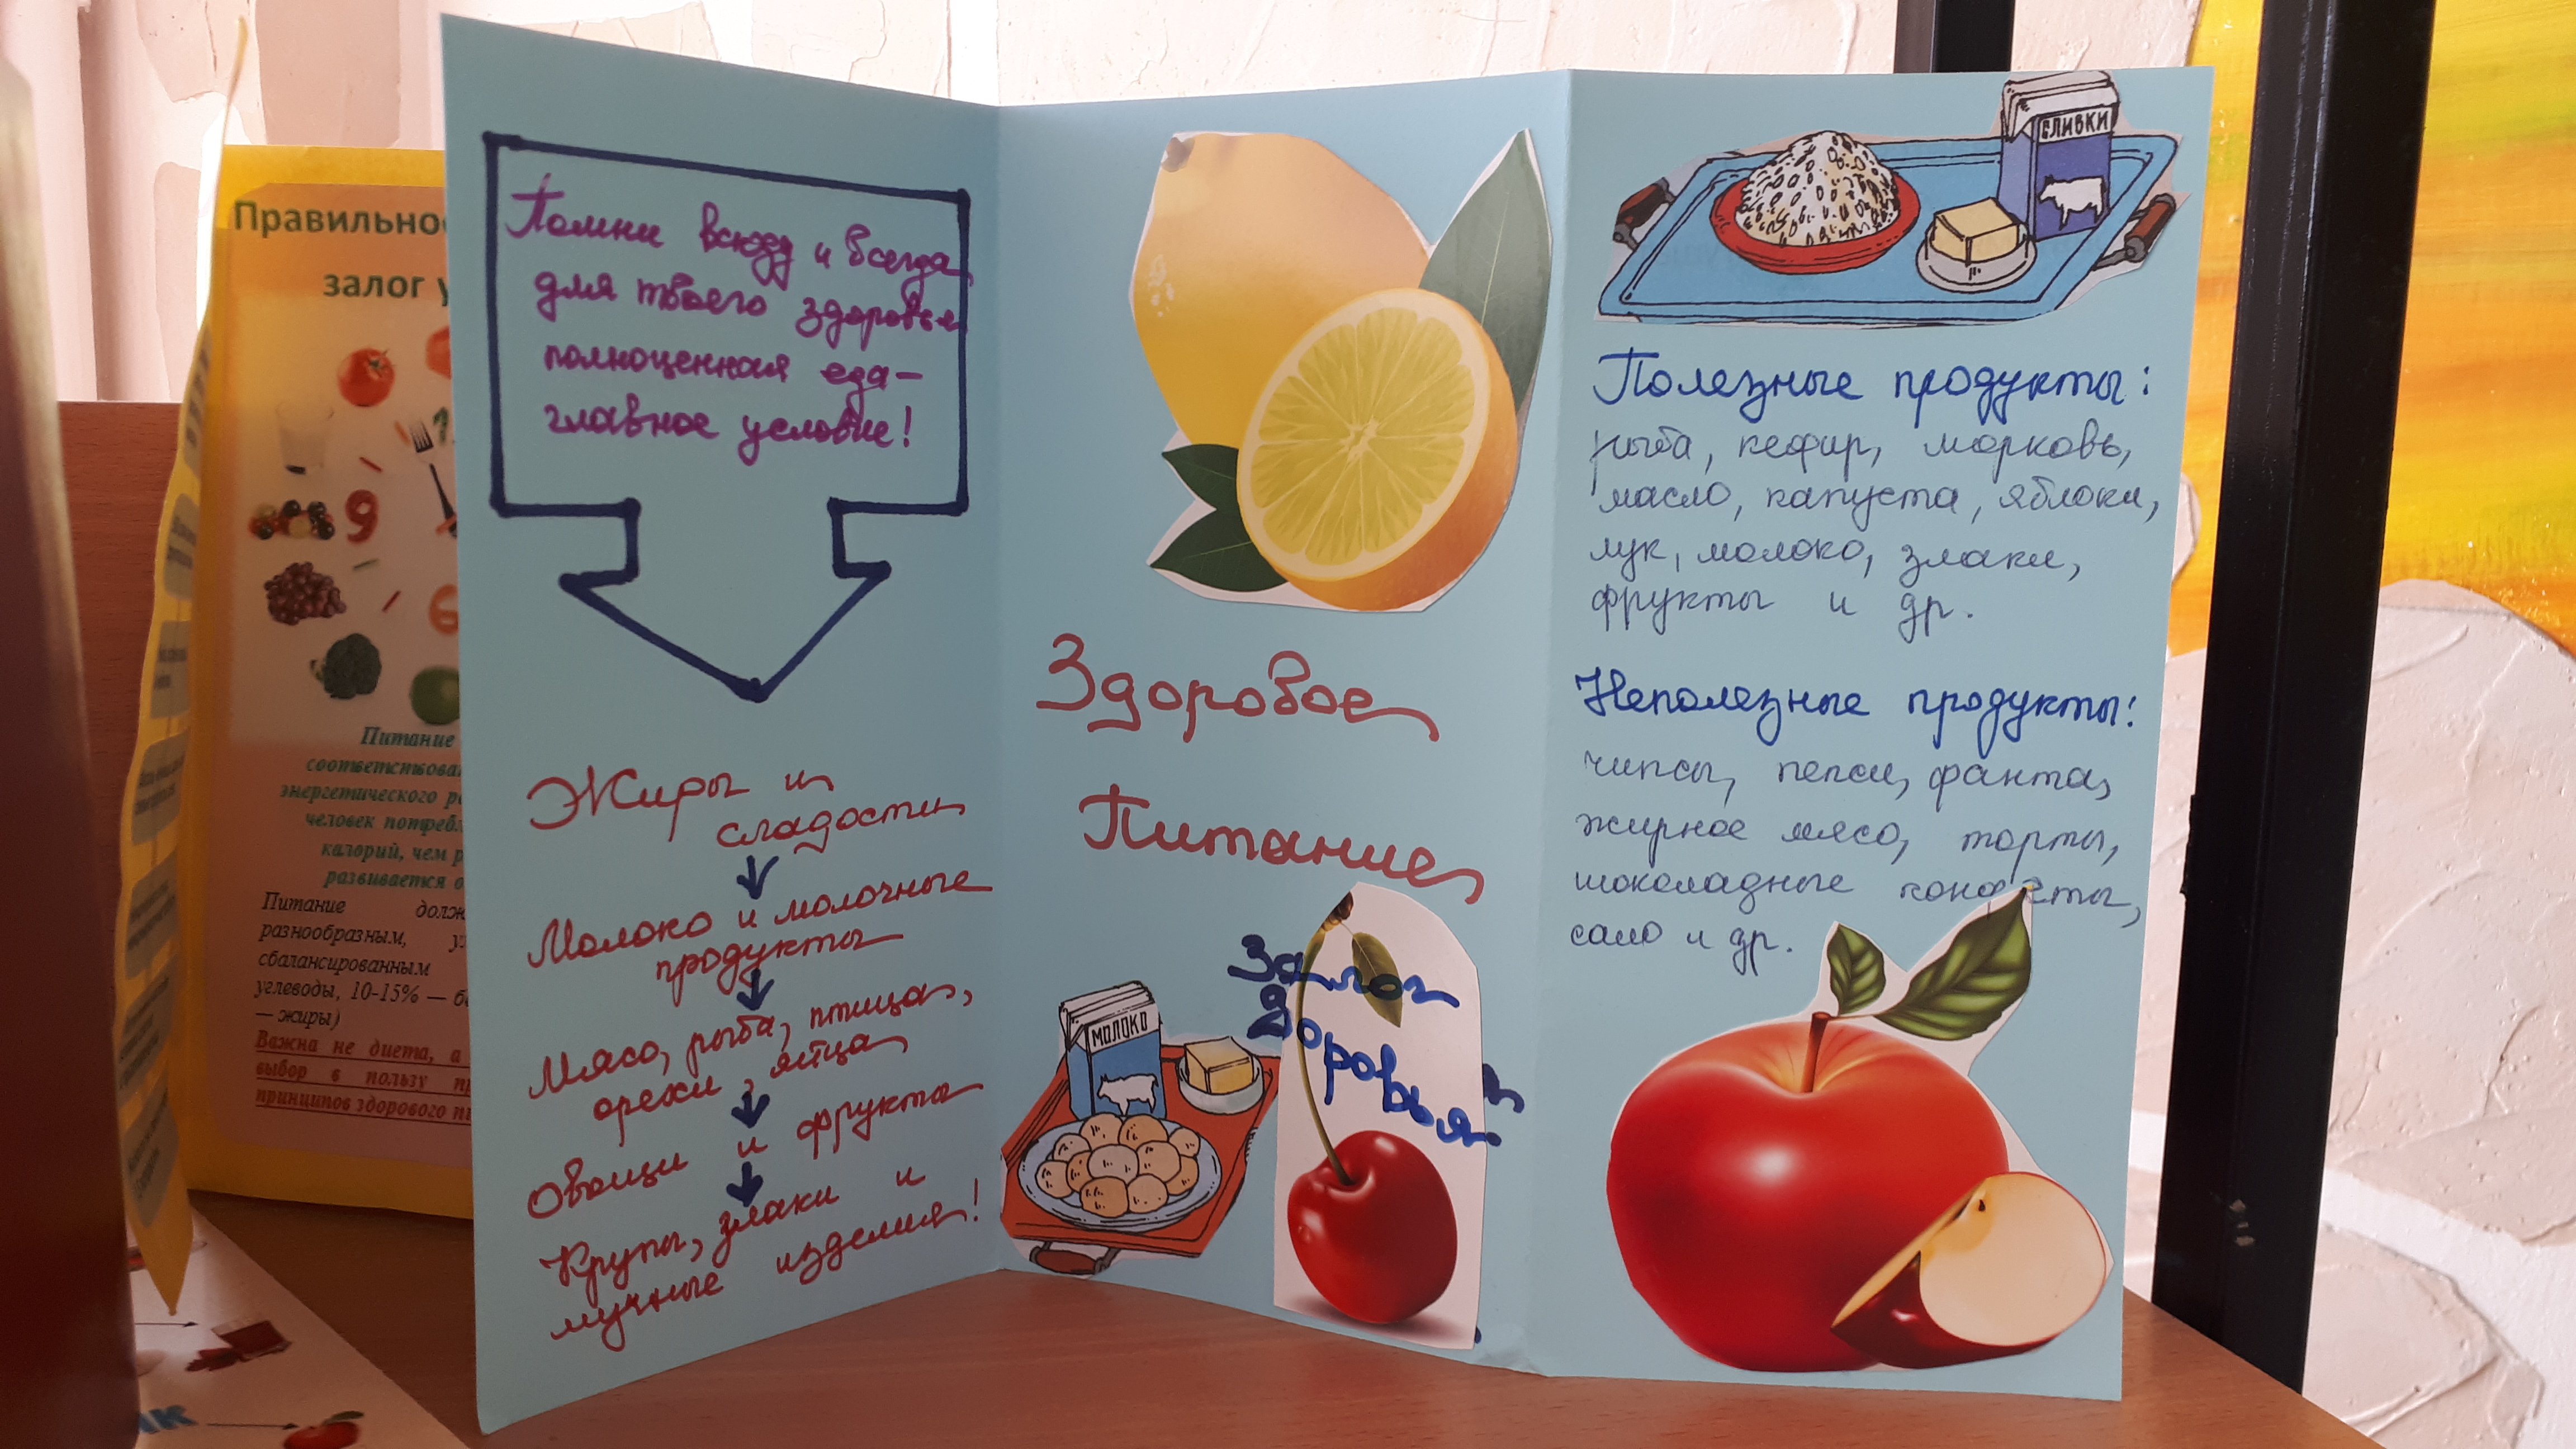 Правильное
залог
Питание
соответствоват
энергетического
человек
калорий, чем
развивается
Питание
разнообразным,
сбалансированным
углеводы, 10-15% —
— жиры)
Важна не диета, а
выбор в пользу
принципов здорового
Помни всюду и всегда,
для твоего здоровья
полноценная еда –
главное условие!
Жиры и
сладости
Молоко и молочные
продукты
Мясо, рыба, птица,
орехи, яйца
Овощи и фрукты
Крупы, злаки и
мучные изделия!
Здоровое
Питание
Залог
Здоровья
МОЛОКО
СЛИВКИ
Полезные продукты:
рыба, кефир, морковь,
масло, капуста, яблоки,
лук, молоко, злаки,
фрукты и др.
Неполезные продукты:
чипсы, пепси, фанта,
жирное мясо, торты,
шоколадные конфеты,
сало и др.